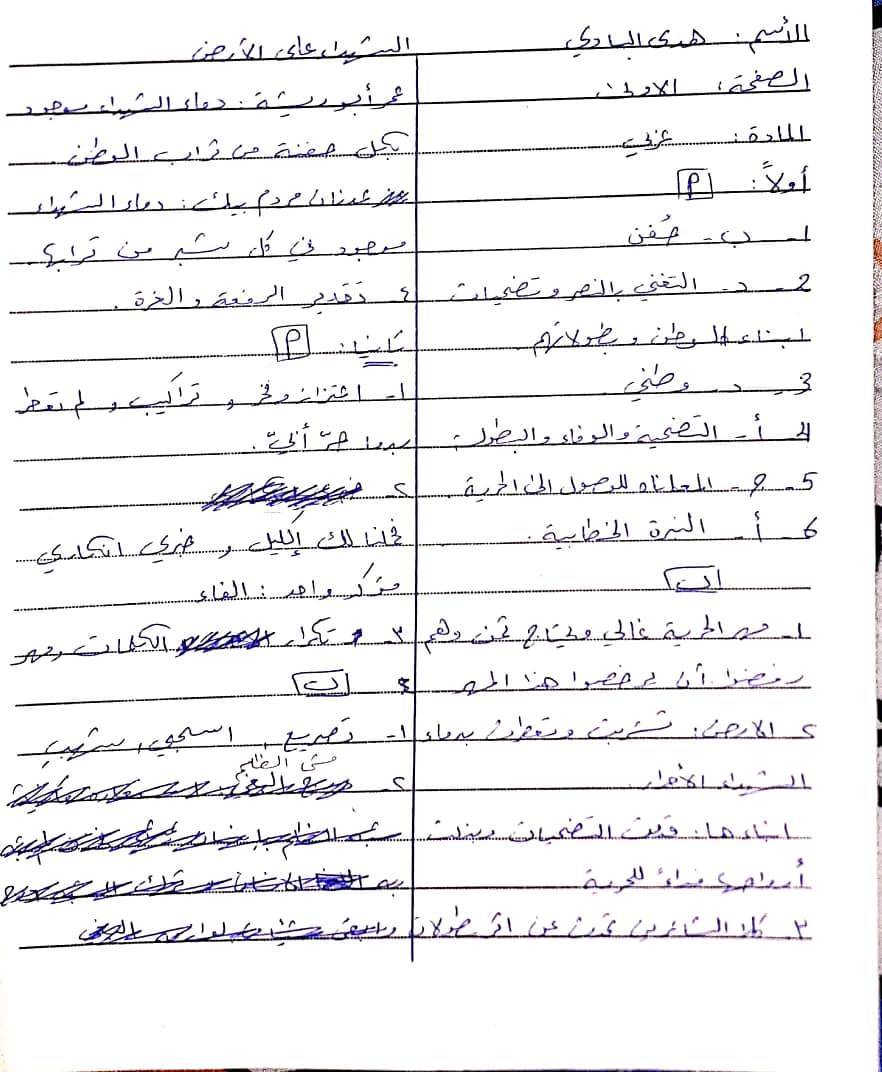 الأسم: هدى البادي
الصفحة: الاولى
المادة: عربي
أولاً: P
1- ب- جُفن
2- د- التغني بالنصر وتضحيات
ابناء الوطن وبطولاتهم
3- د- وطني
4- أ- التضحية والوفاء والبطولة
5- ج- المعاناة للوصول الى الحرية
6- أ- النبرة الخطابية.
ب
1- مهر الحرية غالي ويحتاج ثمن وهم
رفضوا أن يرخصوا هذا المهر
2 الارض: تشربت وتعطرت بدماء
الشهداء الأحرار
ابناءها: قدمت التضحيات وبذلت
أرواحها فداءً للحرية
٣- كلا الشاعرين تحدث عن اثر بطولات
الشهداء على الأرض
عمر أبو ريشة: دماء الشهداء موجود
بكل حفنة من تراب الوطن.
عدنان مردم بيك: دماء الشهداء
موجود في كل شبر من ترابها.
٤ تقدير الرفعة والعزة.
ثانيا: P
1- اعتزاز وفخر و تراكيب و لم تعطر
بدما حرّ أبيّ.
2-
فحملنا لك إكليل و خبري انكاري
مؤكد واحد: الفاء
٣- تكرار الكلمات
ب
1- تصريع, اسحبي,
2- متى الظلم